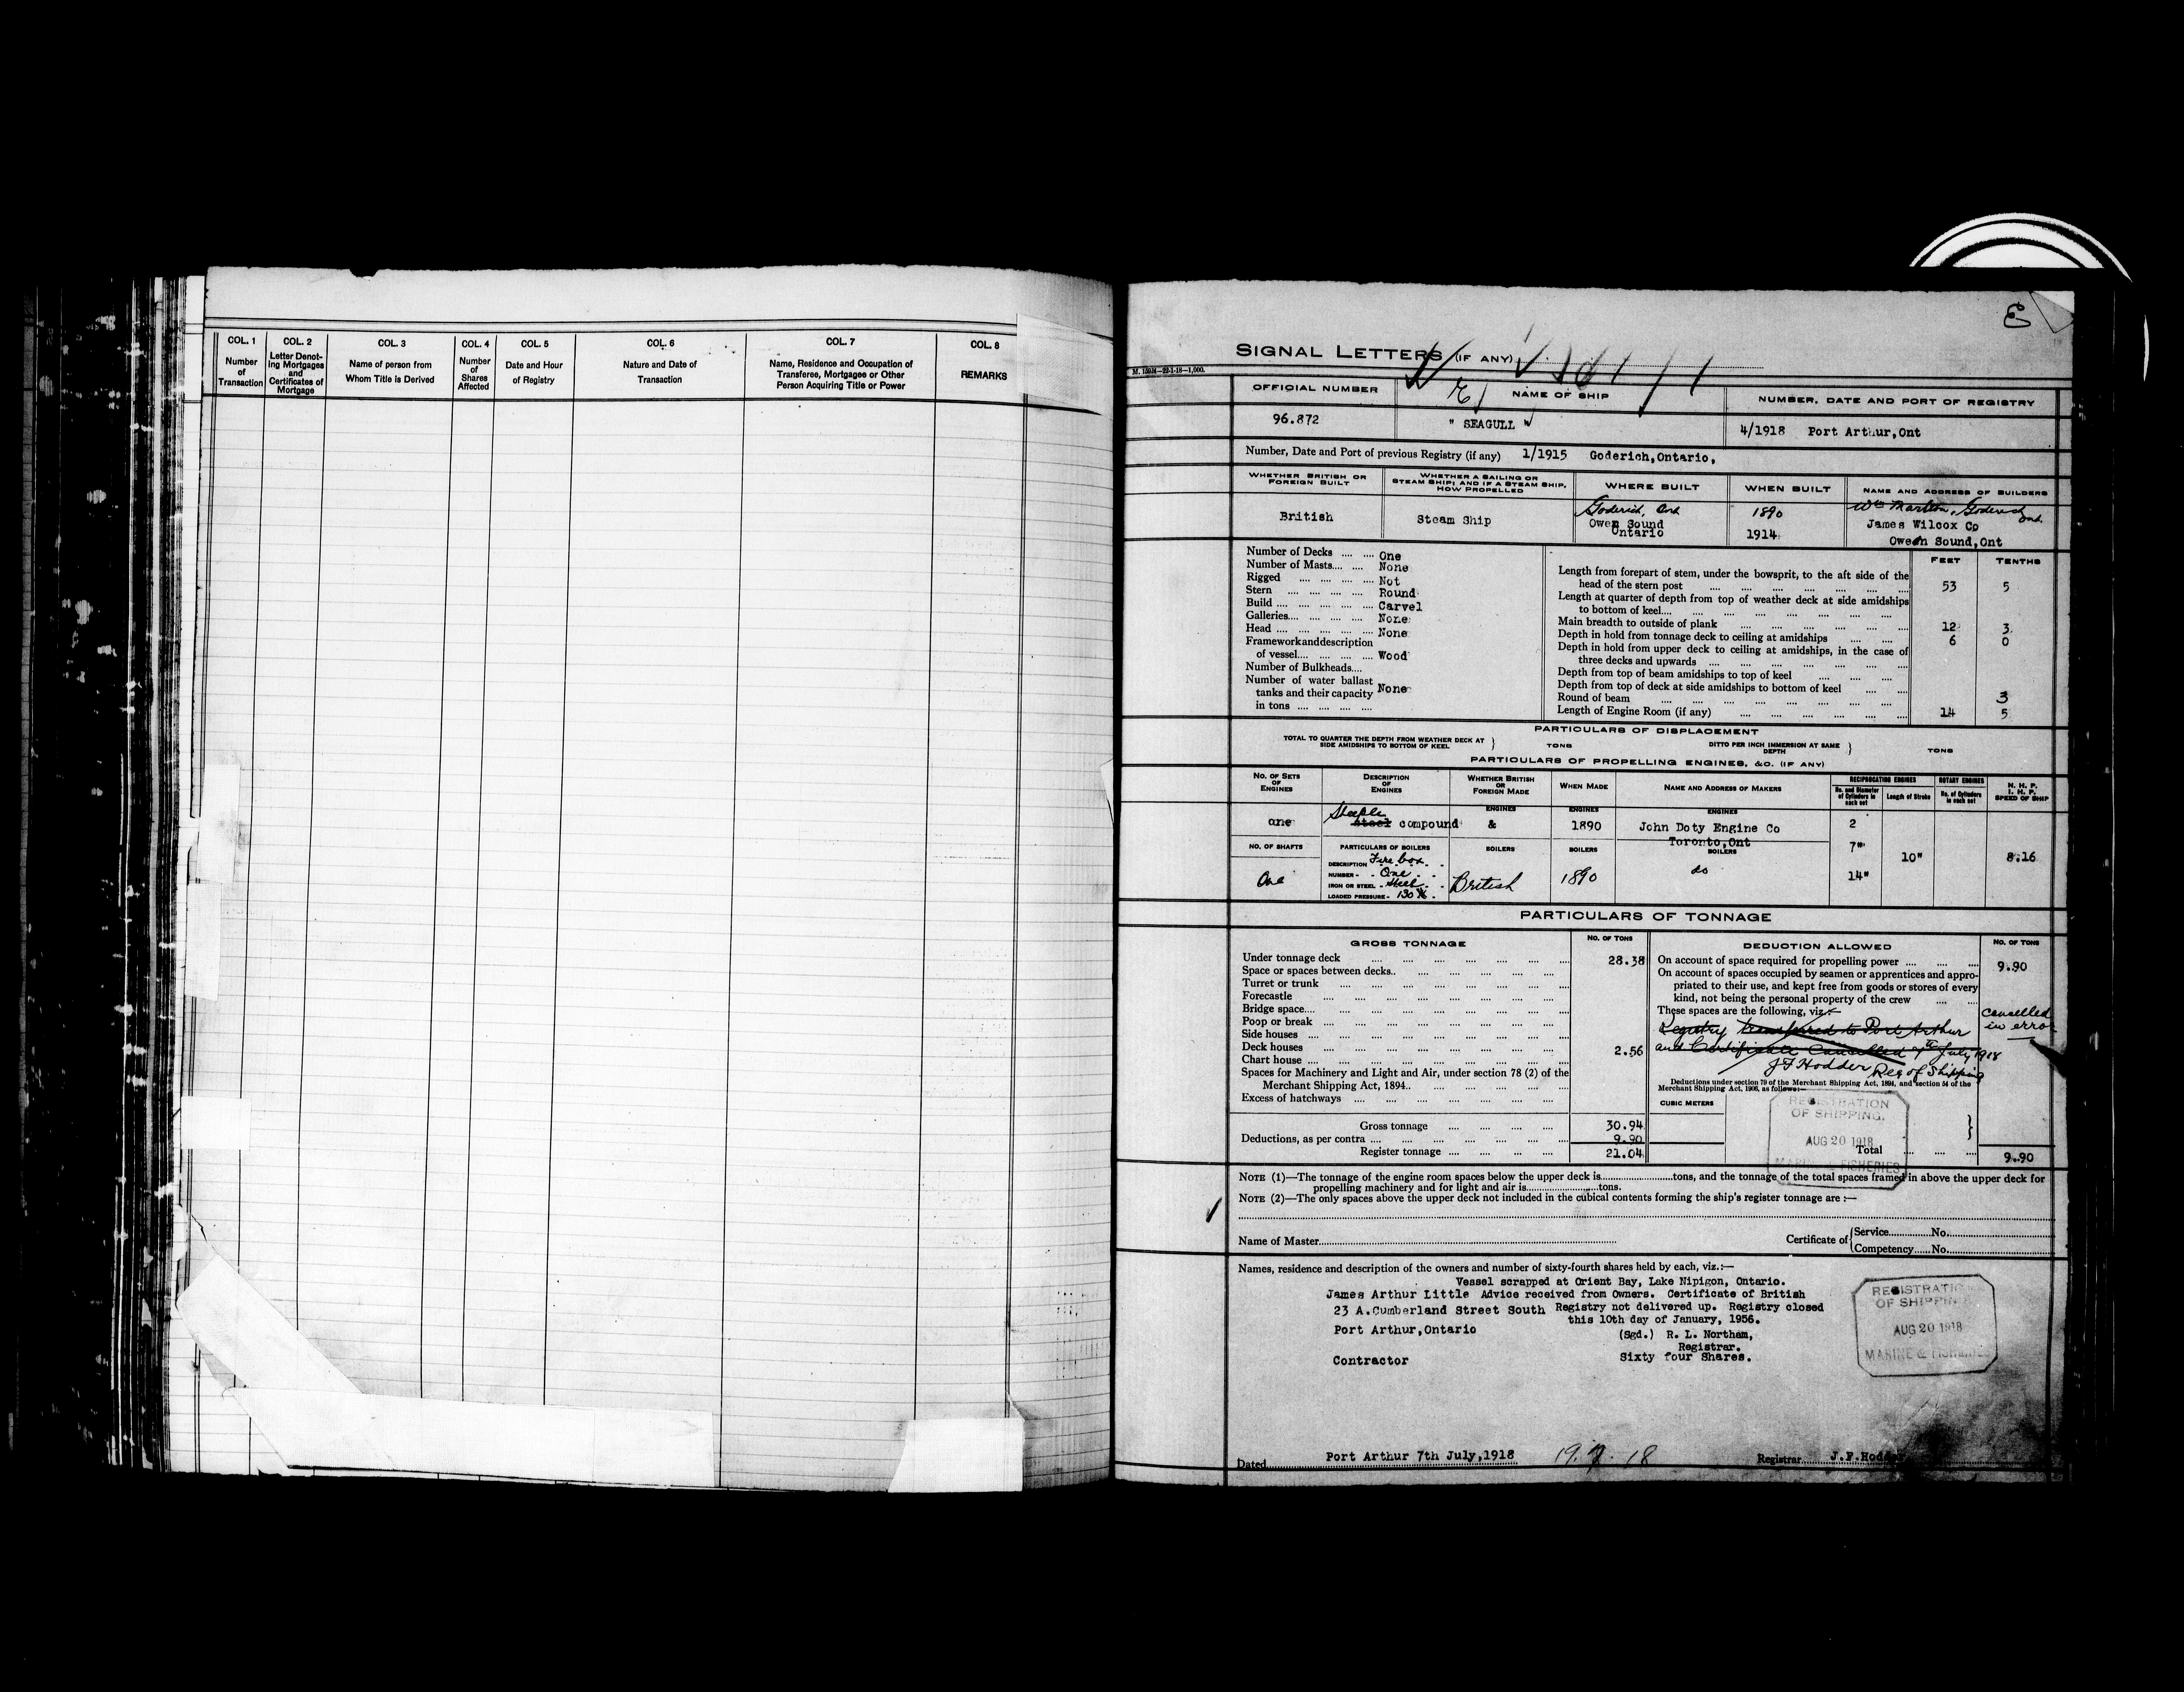 COL. 1
Number
of
Transaction
COL. 2
Letter Denot-
ing Mortgages
and
Certificates of
Mortgage
COL. 3
Name of person from
Whom Title is Derived
COL. 4
Number
of
Shares
Affected
COL. 5
Date and Hour
of Registry
COL. 6
Nature and Date of
Transaction
COL. 7
Name, Residence and Occupation of
Transferee, Mortgagee or Other
Person Acquiring Title or Power
COL. 8
REMARKS
SIGNAL LETTERS (IF ANY)
OFFICIAL NUMBER
NAME OF SHIP
NUMBER, DATE AND PORT OF REGISTRY
96.872
" SEAGULL "
4/1918 Port Arthur,Ont
Number, Date and Port of previous Registry (if any) 1/1915 Goderich,Ontario,
WHETHER BRITISH OR
FOREIGN BUILT
WHETHER A SAILING OR
STEAM SHIP; AND IF A STEAM SHIP,
HOW PROPELLED
WHERE BUILT
WHEN BUILT
NAME AND ADDRESS OF BUILDERS
British
Steam Ship
Goderich, Ont
Owen Sound
Ontario
1890
1914
Wm Marlton, Goderich
Ont.
James Wilcox Co
Owen Sound,Ont
Number of Decks .... .... One
Number of Masts.... .... None
Rigged .... .... .... .... Not
Stern .... .... .... .... Round
Build .... .... .... .... .... Carvel
Galleries.... .... .... .... None
Head .... .... .... .... .... None
Framework and description
of vessel.... .... .... .... Wood
Number of Bulkheads....
Number of water ballast
tanks and their capacity None
in tons .... .... .... ....
FEET TENTHS
Length from forepart of stem, under the bowsprit, to the aft side of the
head of the stern post 53 5
Length at quarter of depth from top of weather deck at side amidships
to bottom of keel....
Main breadth to outside of plank 12 3
Depth in hold from tonnage deck to ceiling at amidships 6 0
Depth in hold from upper deck to ceiling at amidships, in the case of
three decks and upwards
Depth from top of beam amidships to top of keel
Depth from top of deck at side amidships to bottom of keel
Round of beam 3
Length of Engine Room (if any) 14 5
PARTICULARS OF DISPLACEMENT
TOTAL TO QUARTER THE DEPTH FROM WEATHER DECK AT
SIDE AMIDSHIPS TO BOTTOM OF KEEL
TONS
DITTO PER INCH IMMERSION AT SAME
DEPTH
TONS
PARTICULARS OF PROPELLING ENGINES, &C. (IF ANY)
NO. OF SETS
OF
ENGINES
DESCRIPTION
OF
ENGINES
WHETHER BRITISH
OR
FOREIGN MADE
WHEN MADE
NAME AND ADDRESS OF MAKERS
RECIPROCATING ENGINES
No. and Diameter
of Cylinders in
each set
Length of Stroke
ROTARY ENGINES
No. of Cylinders
in each set
N. H. P.
I. H. P.
SPEED OF SHIP
ENGINES ENGINES ENGINES
one
Steeple
steel compound
&
1890
John Doty Engine Co
Toronto,Ont
2
7"
14"
10"
8.16
NO. OF SHAFTS
PARTICULARS OF BOILERS
BOILERS BOILERS BOILERS
One
DESCRIPTION Fire box
NUMBER One
IRON OR STEEL Steel
LOADED PRESSURE 130
British
1890
do
PARTICULARS OF TONNAGE
GROSS TONNAGE
NO. OF TONS
Under tonnage deck 28.38
Space or spaces between decks..
Turret or trunk
Forecastle
Bridge space....
Poop or break
Side houses
Deck houses 2.56
Chart house
Spaces for Machinery and Light and Air, under section 78 (2) of the
Merchant Shipping Act, 1894..
Excess of hatchways
Gross tonnage 30.94
Deductions, as per contra 9.90
Register tonnage 21.04
DEDUCTION ALLOWED
NO. OF TONS
On account of space required for propelling power 9.90
On account of spaces occupied by seamen or apprentices and appro-
priated to their use, and kept free from goods or stores of every
kind, not being the personal property of the crew
These spaces are the following, viz:—
Registry transferred to Port Arthur
and Certificate Cancelled 7th July 1918
J F Hodder Reg of Shipping
cancelled
in error
Deductions under section 79 of the Merchant Shipping Act, 1894, and section 54 of the
Merchant Shipping Act, 1906, as follows:—
CUBIC METERS
REGISTRATION
OF SHIPPING.
AUG 20 1918
MARINE & FISHERIES
Total 9.90
NOTE (1)—The tonnage of the engine room spaces below the upper deck is..........tons, and the tonnage of the total spaces framed in above the upper deck for
propelling machinery and for light and air is..........tons.
NOTE (2)—The only spaces above the upper deck not included in the cubical contents forming the ship's register tonnage are :—
Name of Master..........
Certificate of
Service..........No..........
Competency......No..........
Names, residence and description of the owners and number of sixty-fourth shares held by each, viz.:—
Vessel scrapped at Orient Bay, Lake Nipigon, Ontario.
James Arthur Little Advice received from Owners. Certificate of British
23 A.Cumberland Street South Registry not delivered up. Registry closed
this 10th day of January, 1956.
Port Arthur,Ontario (Sgd.) R. L. Northam,
Registrar.
Contractor Sixty four Shares.
REGISTRATION
OF SHIPPING
AUG 20 1918
MARINE & FISHERIES
Dated Port Arthur 7th July,1918 19.7.18 Registrar J.F.Hodder